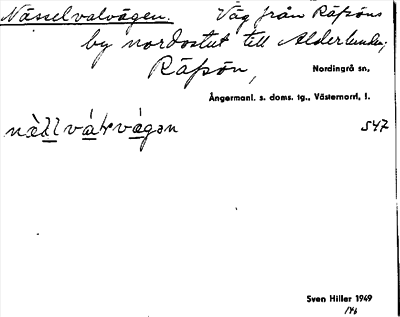 Nässelvalvägen. Väg från Räfsöns
by nordostut till Alderlunden;
Räfsön,
Nordingrå sn,
Ångermanl. s. doms. tg., Västernorrl, l.
547
Sven Hiller 1949
146